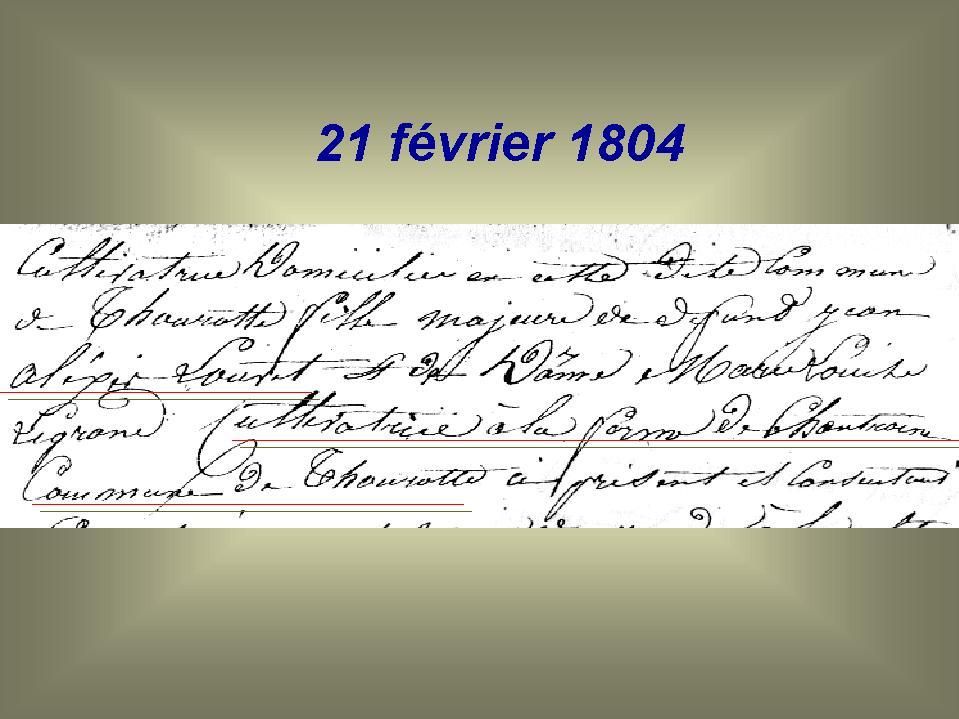 21 février 1804
Cultivatrice Domiciliée en cette Dite Commune
de Thourotte fille majeure de Defunt jean
aléxis Louvet & de Dâme Marie Louise
Legrand Cultivatrice à la ferme de Chantraine
Commune de Thourotte ci présent et Consentant